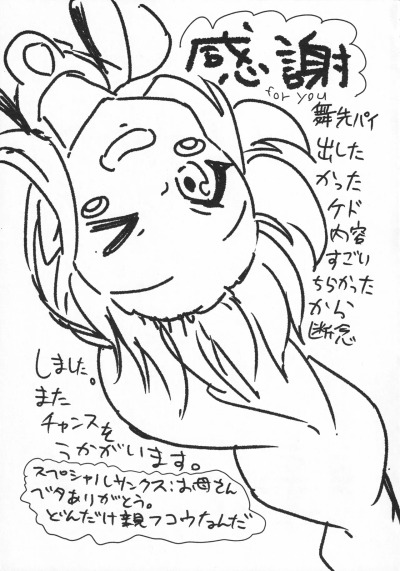 感謝
for you
舞先パイ
出した
かった
ケド
内容
すごい
ちらかった
から
断念
しました。
また
チャンスを
うかがいます。
スペシャルサンクス：お母さん
ベタありがとう。
どんだけ親フコウなんだ